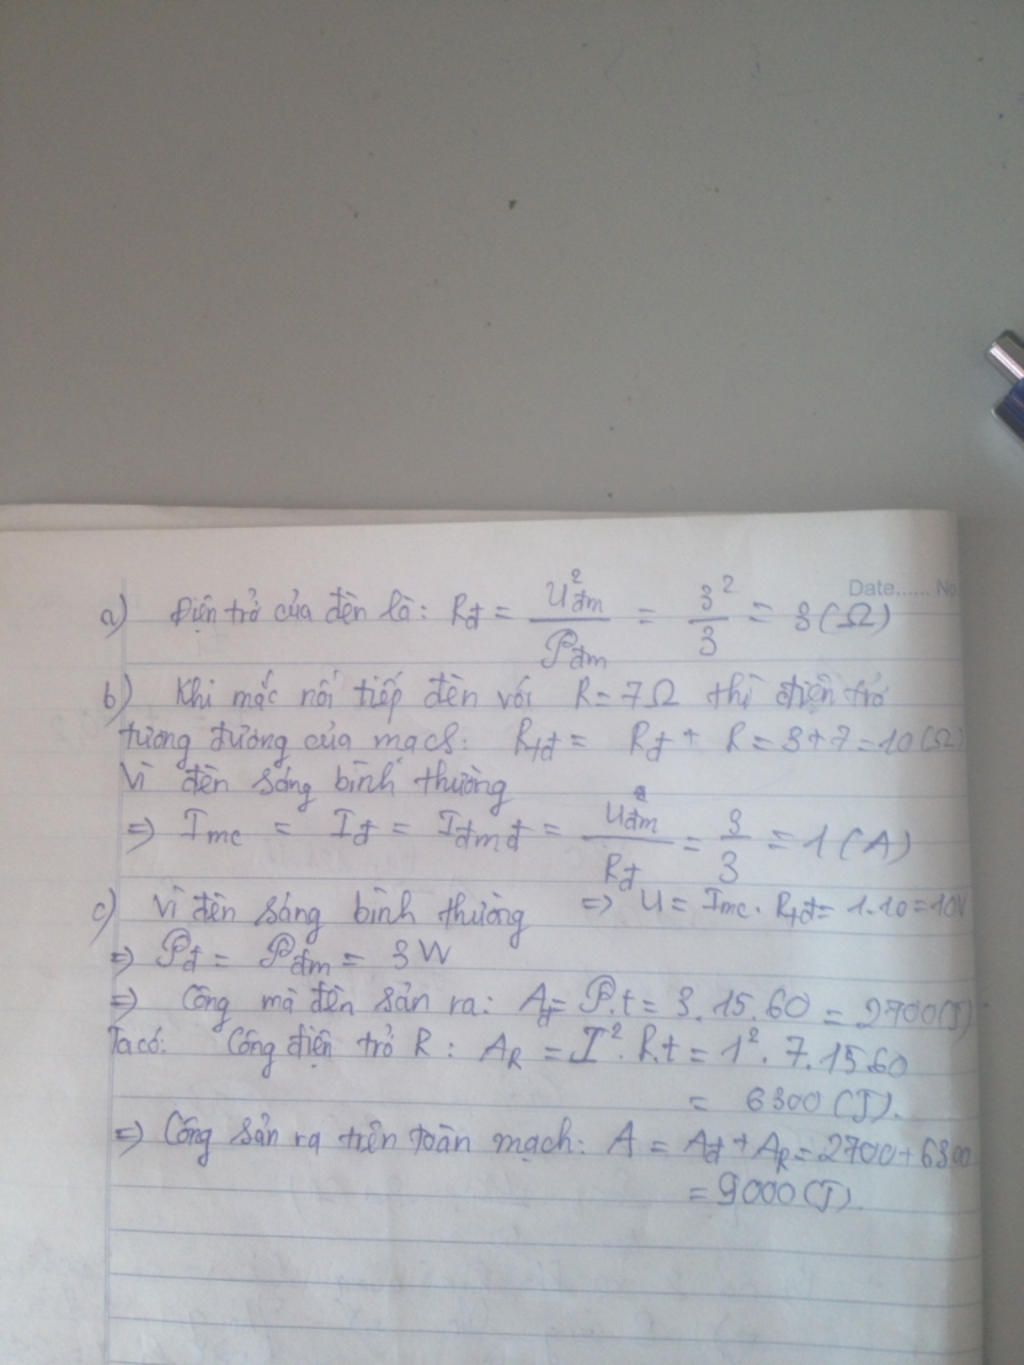 Date...... No.
a) Điện trở của đèn là: Rđ = U²đm / Pđm = 3² / 3 = 3 (Ω)
b) Khi mắc nối tiếp đèn với R = 7Ω thì điện trở
tương đương của mạch: Rtđ = Rđ + R = 3+7 = 10 (Ω)
Vì đèn sáng bình thường
=> Imc = Iđ = Iđmđ = Uđm / Rđ = 3 / 3 = 1 (A)
=> U = Imc . Rtđ = 1.10 = 10V
c) Vì đèn sáng bình thường
=> Pđ = Pđm = 3W
=> Công mà đèn sản ra: Ađ = P.t = 3.15.60 = 2700 (J)
Ta có: Công điện trở R : AR = I². R.t = 1². 7.15.60
= 6300 (J).
=> Công sản ra trên toàn mạch: A = Ađ + AR = 2700 + 6300
= 9000 (J).